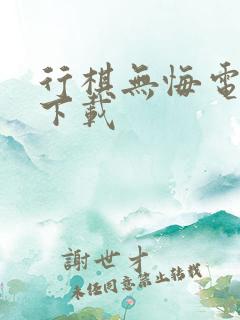 行棋無悔電
下載
謝世才
未任同意禁止转载